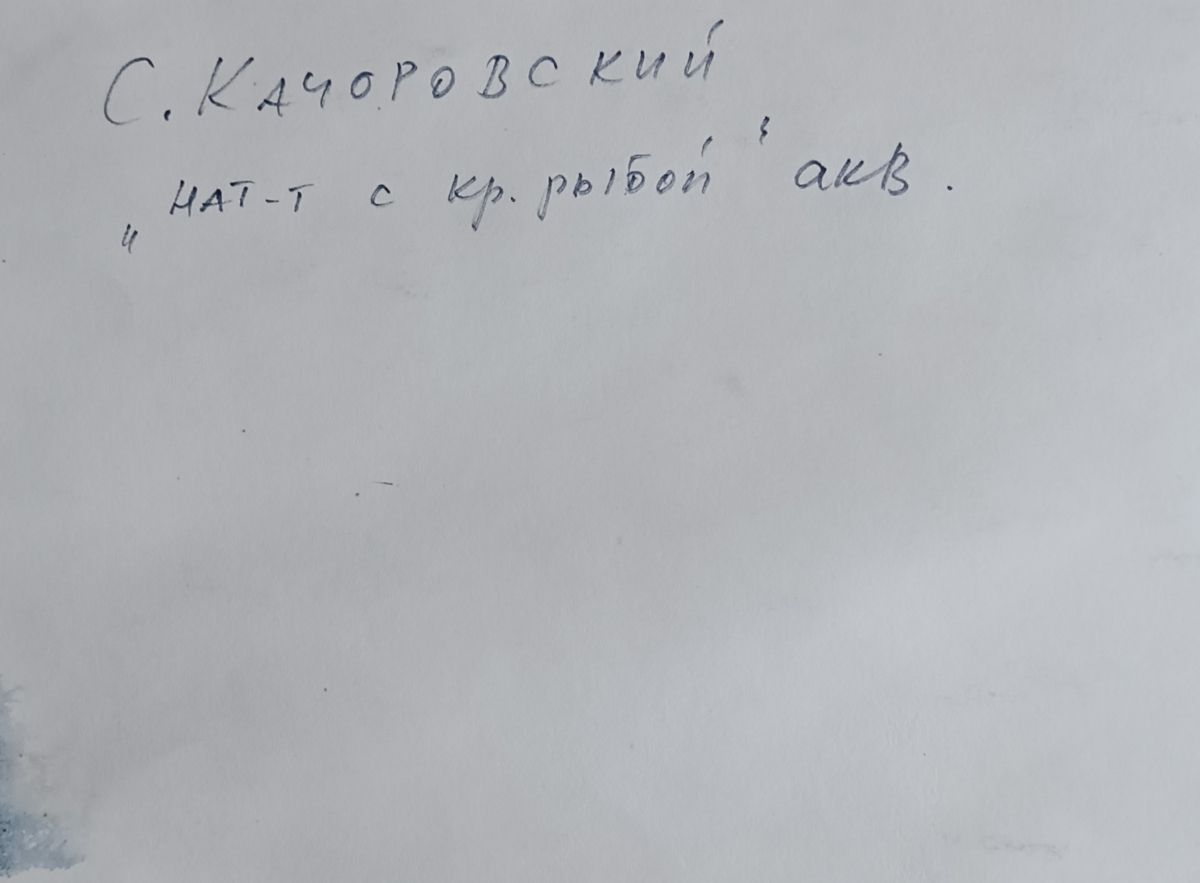 С. Качоровский
„НАТ-Т с кр. рыбой" акв.